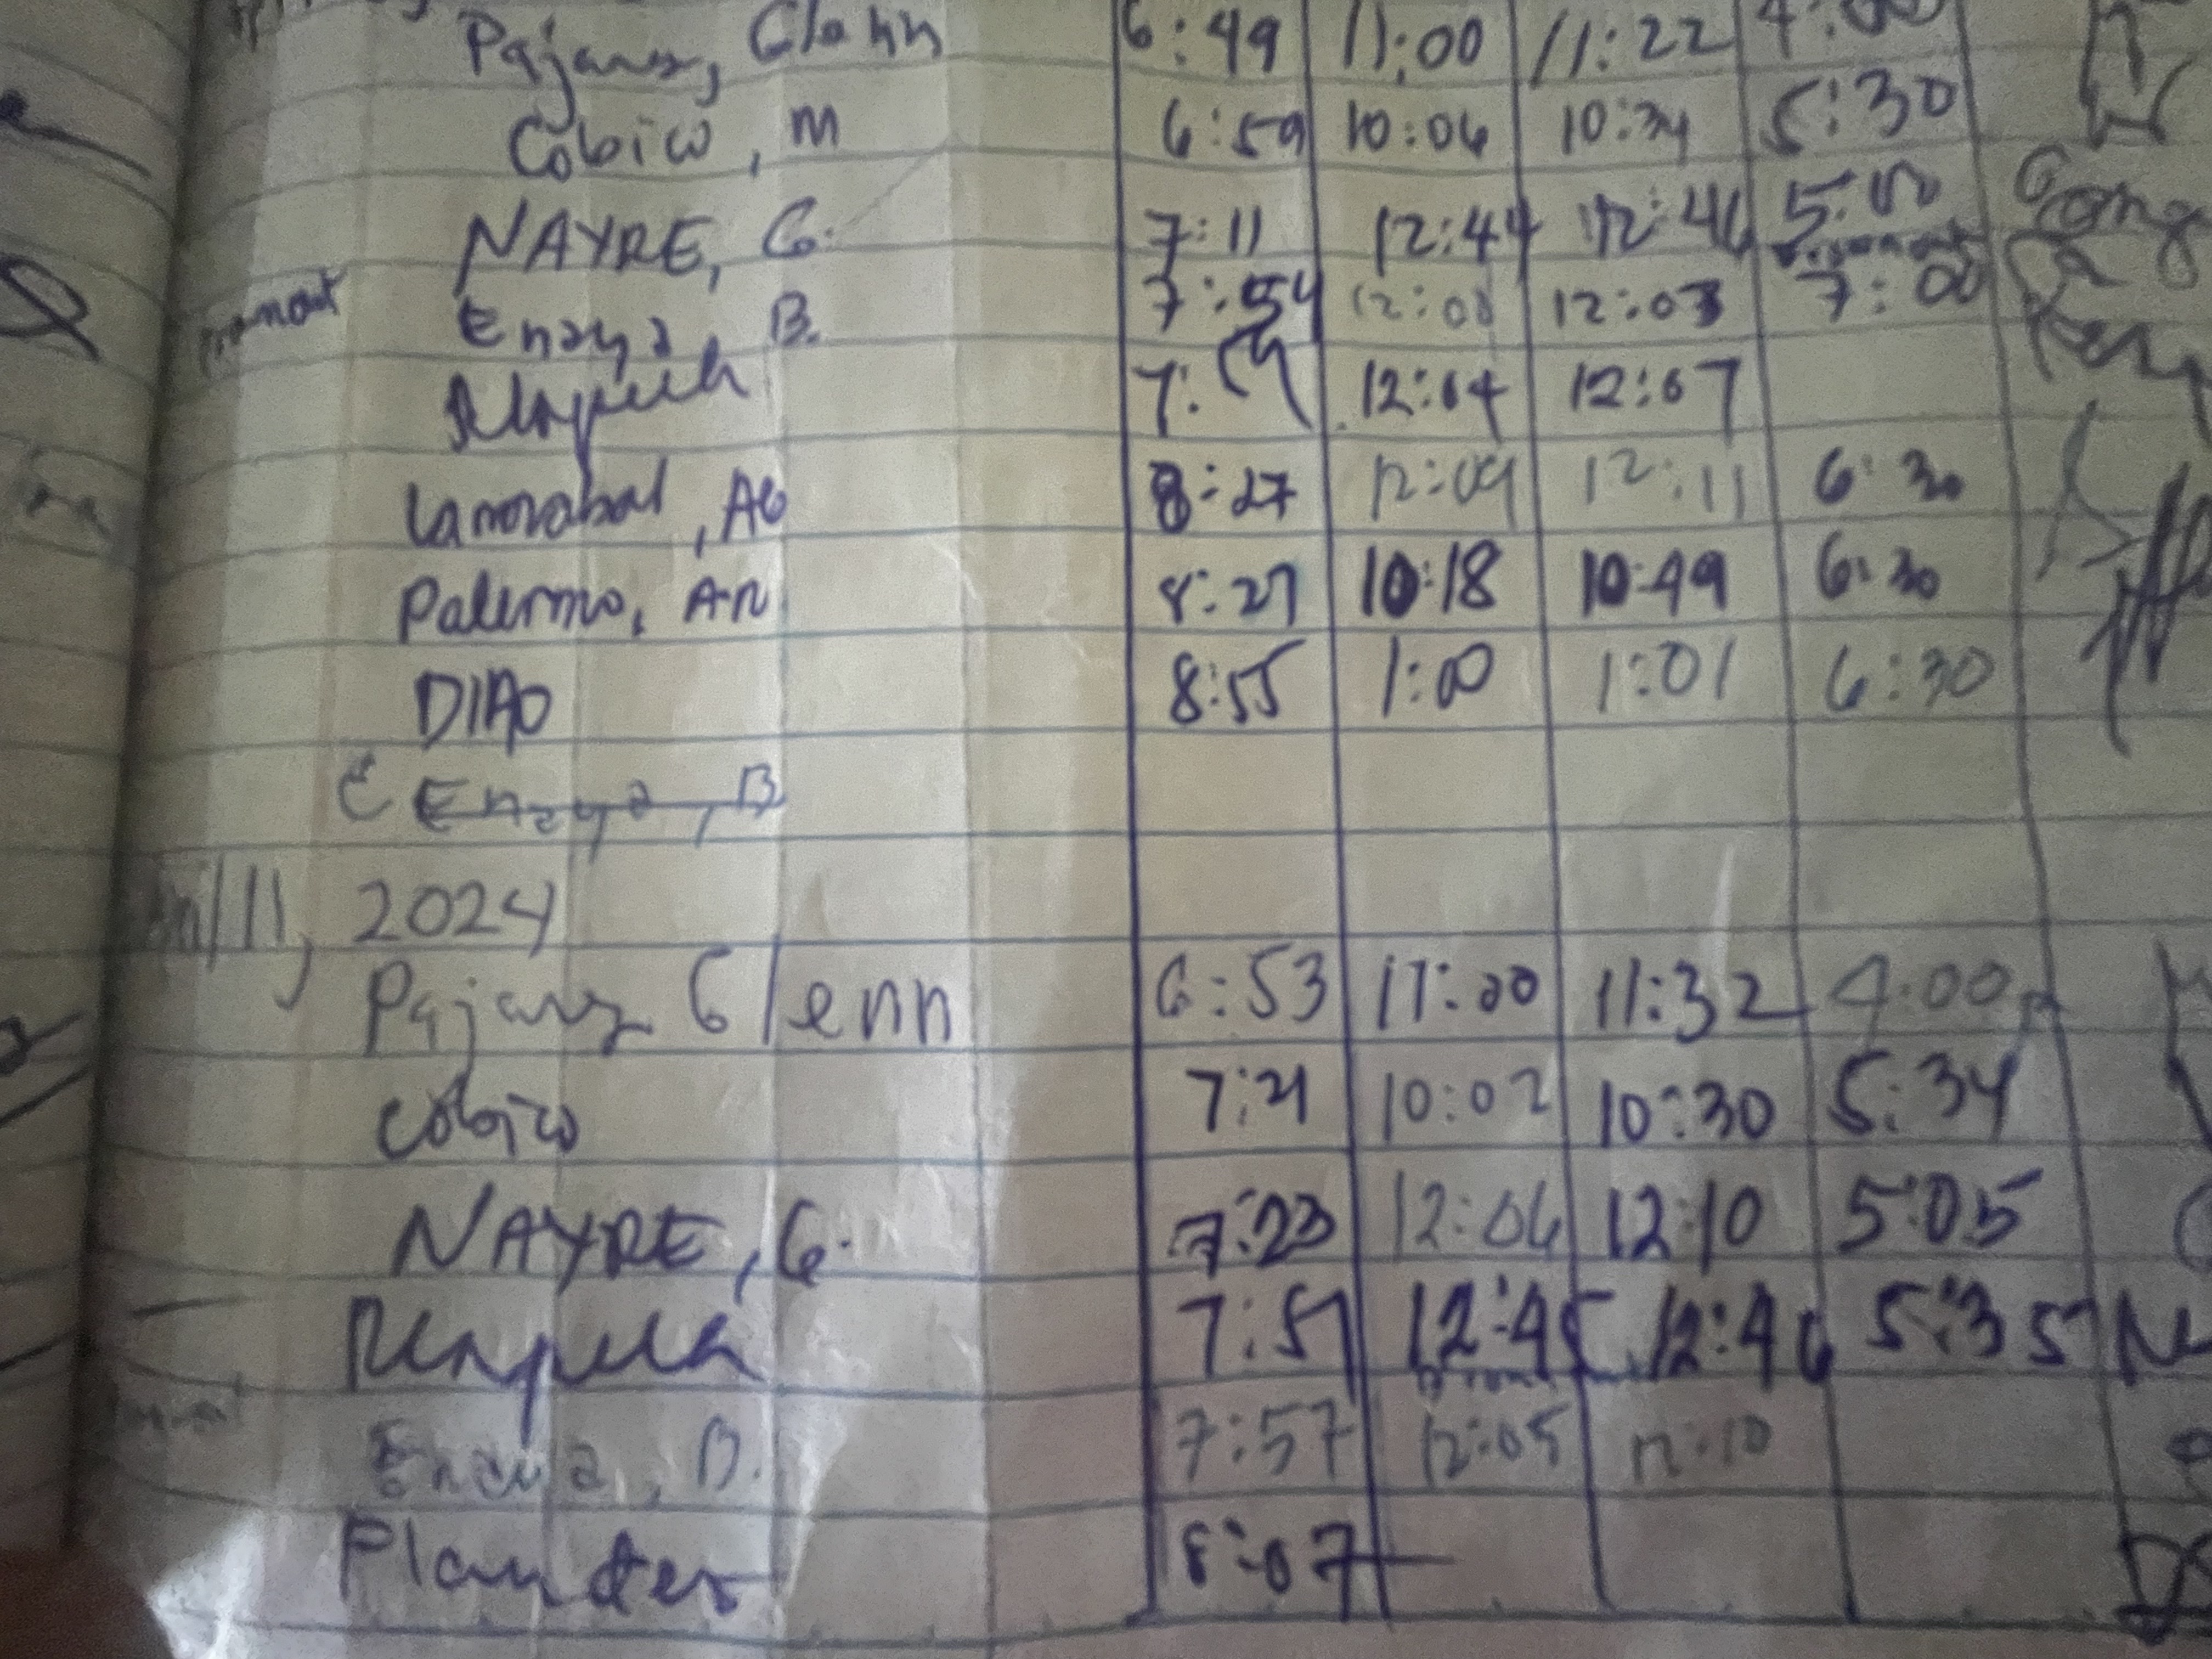 Pajares, Glenn 6:49 11:00 11:22 4:00
Cobico, M 6:59 10:06 10:34 5:30
NAYRE, G. 7:11 12:44 12:46 5:00
Enaya, B. 7:54 12:03 7:00
7: 12:04 12:07
, AG 8:27 12:09 12:11 6:30
Palermo, An 8:27 10:18 10:49 6:30
DIAO 8:55 1:00 1:01 6:30
Enaya, B
11, 2024
Pajares Glenn 6:53 11:00 11:32 4:00
Cobico 7:21 10:02 10:30 5:34
NAYRE, G. 7:23 12:06 12:10 5:05
7:51 12:45 12:46 5:35
Enaya, B. 7:57 12:05 12:10
8:07